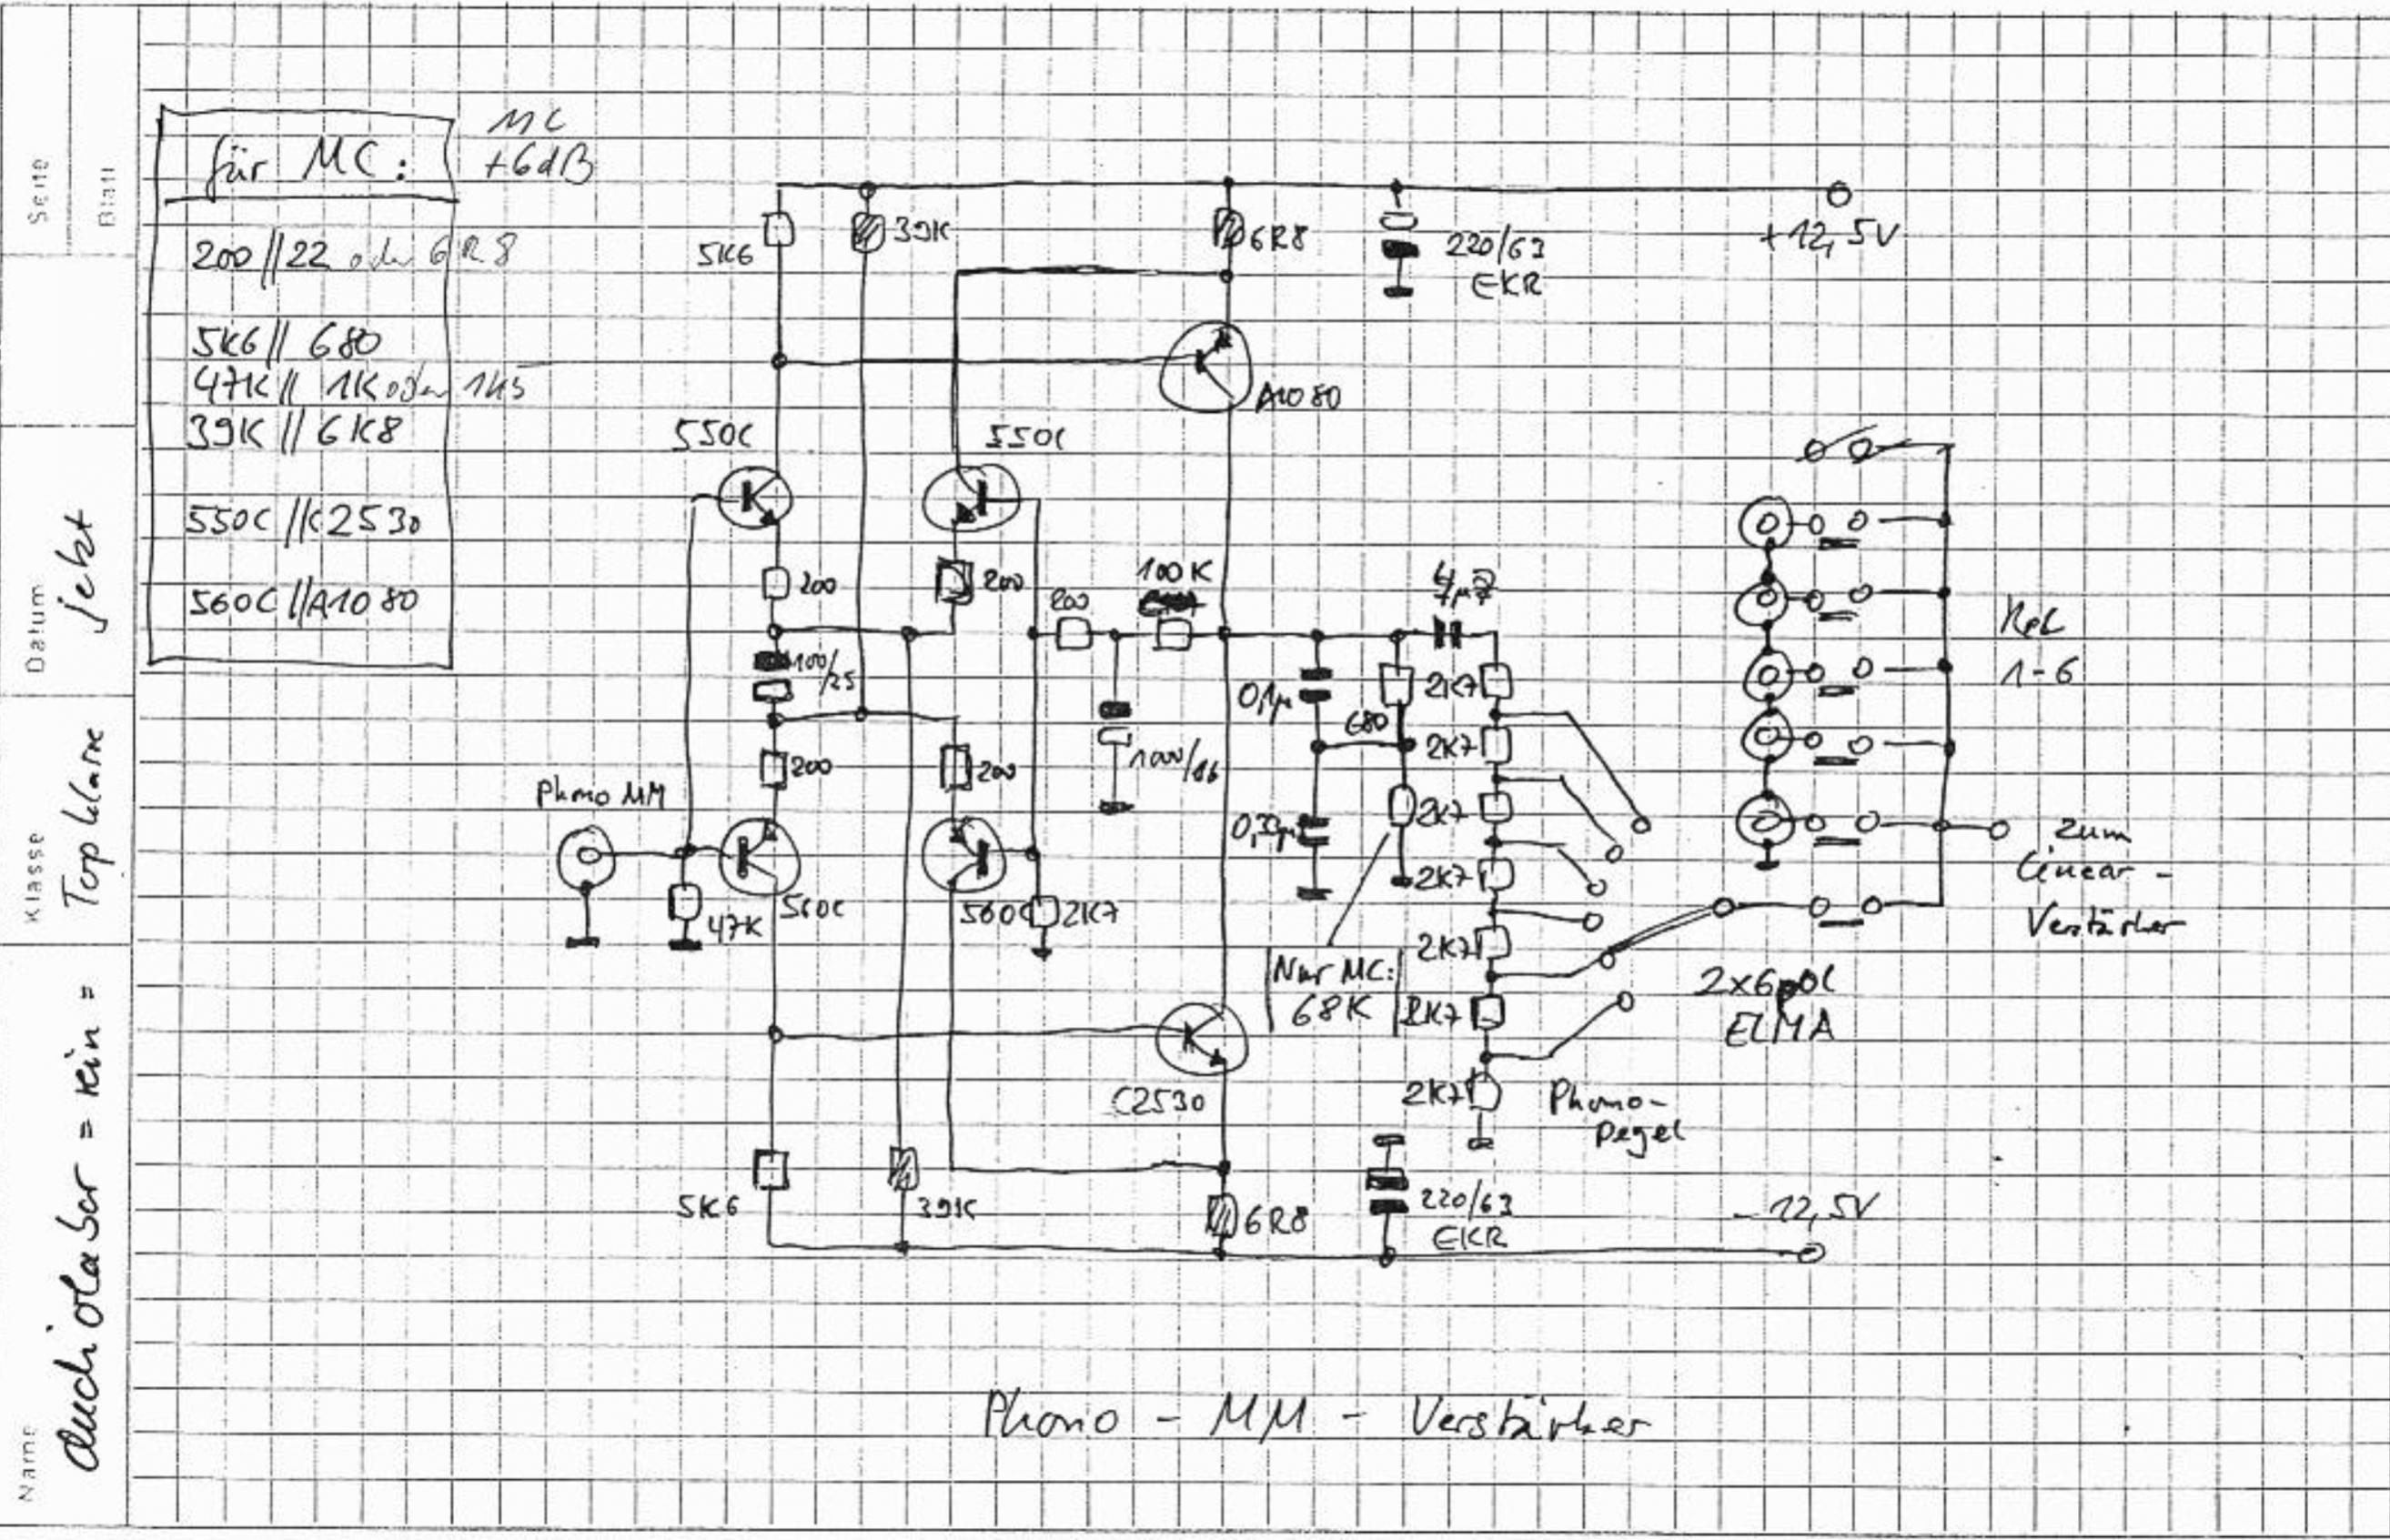 Seite
Blatt
Datum
jetzt
Klasse
Top Klasse
Name
audiolabor = rein =
für MC:
MC
+6dB
200//22 oder 6R8
5K6//680
47K//1K oder 1K5
39K//6K8
550C//C2530
560C//A1080
5K6
39K
6R8
220/63
EKR
+12,5V
A1080
550C
550C
200
200
200
100K
4µ7
100/25
0,1µ
680
2K7
2K7
1000/16
200
200
Phono MM
0,33µ
2K7
2K7
47K
560C
560C
2K7
2K7
2K7
2K7
Nur MC:
68K
Rel
1-6
zum
Linear-
Verstärker
2x6pol
ELMA
C2530
Phono-
Pegel
5K6
39K
6R8
220/63
EKR
-12,5V
Phono - MM - Verstärker